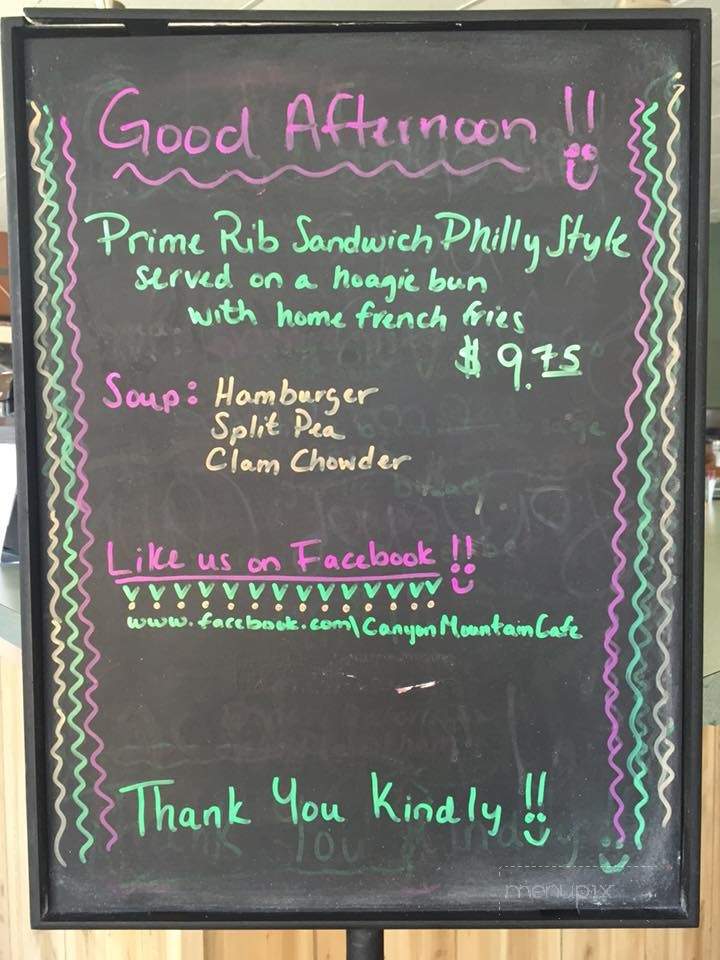 Good Afternoon !!
Prime Rib Sandwich Philly Style
served on a hoagie bun
with home french fries
$ 9.75
Soup: Hamburger
Split Pea
Clam Chowder
Like us on Facebook !!
www.facebook.com\CanyonMountainCafe
Thank You Kindly !!
menupix